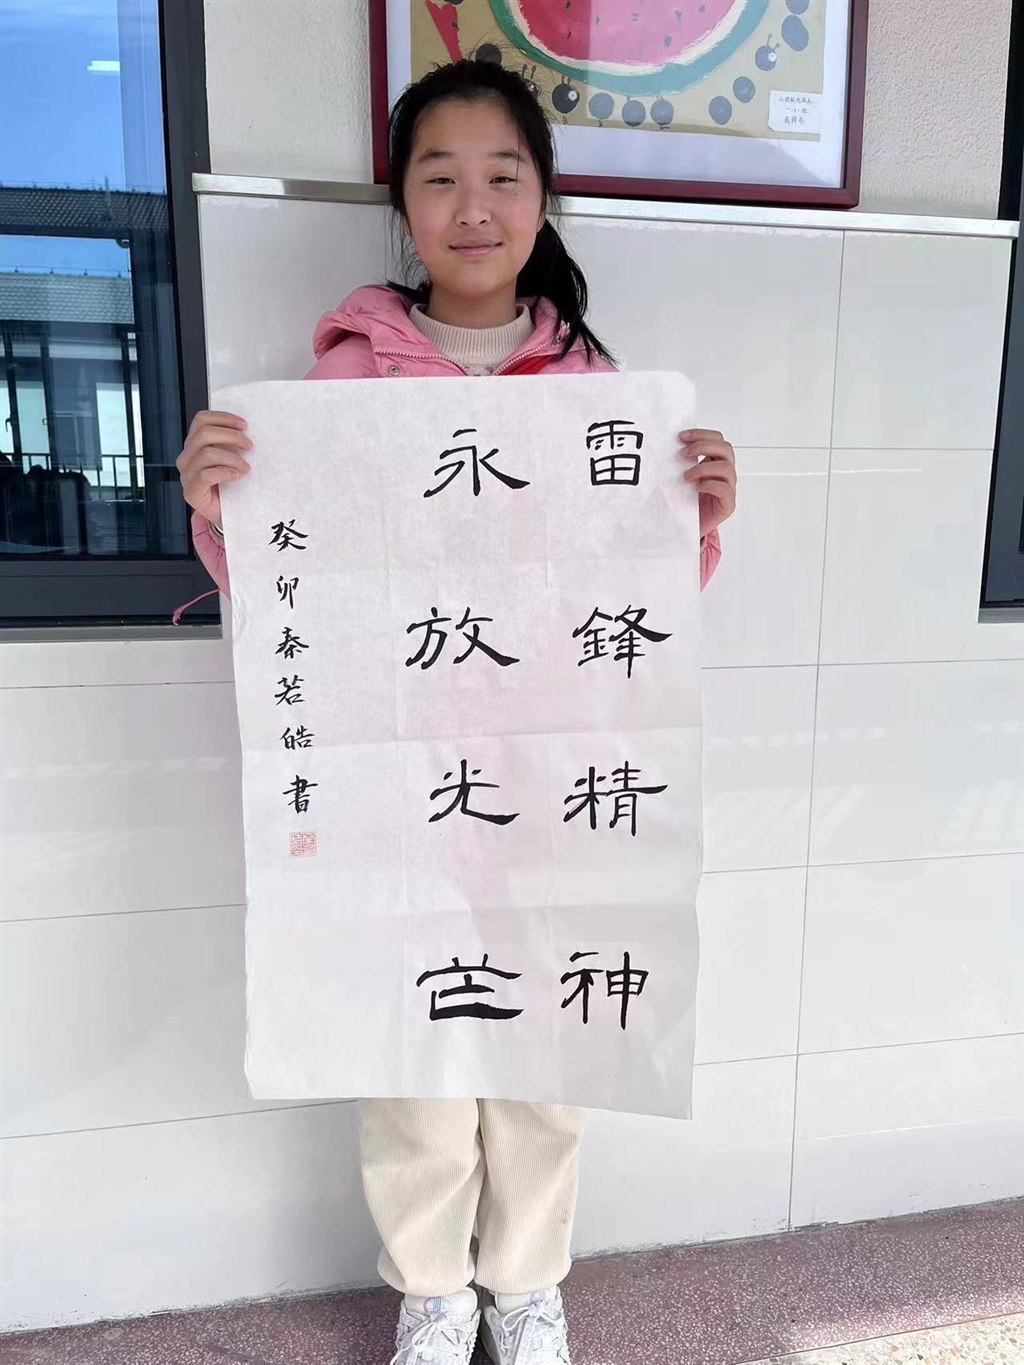 雷鋒精神
永放光芒
癸卯秦若皓書